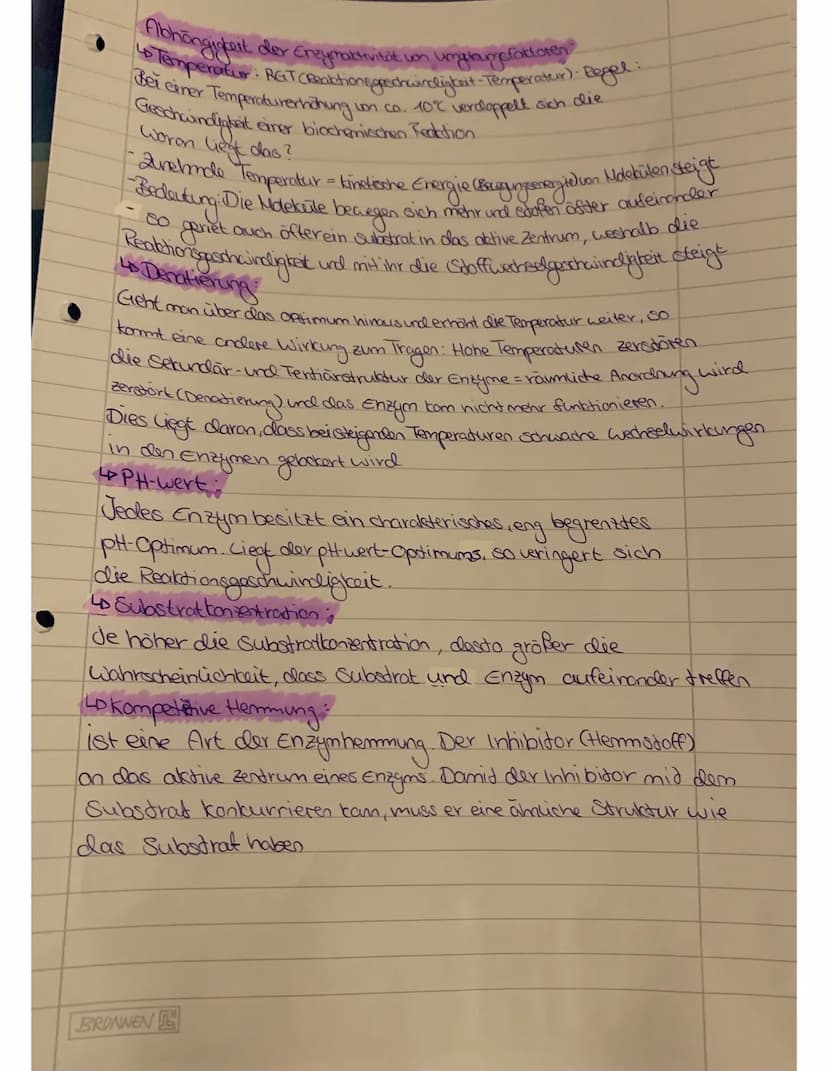 Abhängigkeit der Enzymaktivität von Umgebungsfaktoren
↳ Temperatur: RGT (Reaktionsgeschwindigkeit-Temperatur)-Regel:
Bei einer Temperaturerhöhung von ca. 10°C verdoppelt sich die
Geschwindigkeit einer biochemischen Reaktion
Woran liegt das?
- Zunehmde Temperatur = kinetische Energie (Bewegungsenergie) von Molekülen steigt
- Bedeutung: Die Moleküle bewegen sich mehr und stoßen öfter aufeinander
- so geriet auch öfter ein Substrat in das aktive Zentrum, weshalb die
Reaktionsgeschwindigkeit und mit ihr die (Stoffwechselgeschwindigkeit steigt
↳ Denatierung:
Geht man über das Optimum hinaus und erhöht die Temperatur weiter, so
kommt eine andere Wirkung zum Tragen: Hohe Temperaturen zerstören
die Sekundär- und Tertiärstruktur der Enzyme = räumliche Anordnung wird
zerstört (Denatierung) und das Enzym kann nicht mehr funktionieren.
Dies liegt daran, dass bei steigenden Temperaturen schwache Wechselwirkungen
in den Enzymen gelockert wird
↳ PH-wert:
Jedes Enzym besitzt ein charakterisches, eng begrenztes
pH-Optimum. Liegt der pH-wert-Optimums, so veringert sich
die Reaktionsgeschwindigkeit.
↳ Substratkonzentration:
Je höher die Substratkonzentration, desto größer die
Wahrscheinlichkeit, dass Substrat und Enzym aufeinander treffen
↳ Kompetitive Hemmung:
ist eine Art der Enzymhemmung. Der Inhibitor (Hemmstoff)
an das aktive Zentrum eines Enzyms. Damit der Inhibitor mit dem
Substrat konkurrieren kann, muss er eine ähnliche Struktur wie
das Substrat haben
BRUNNEN